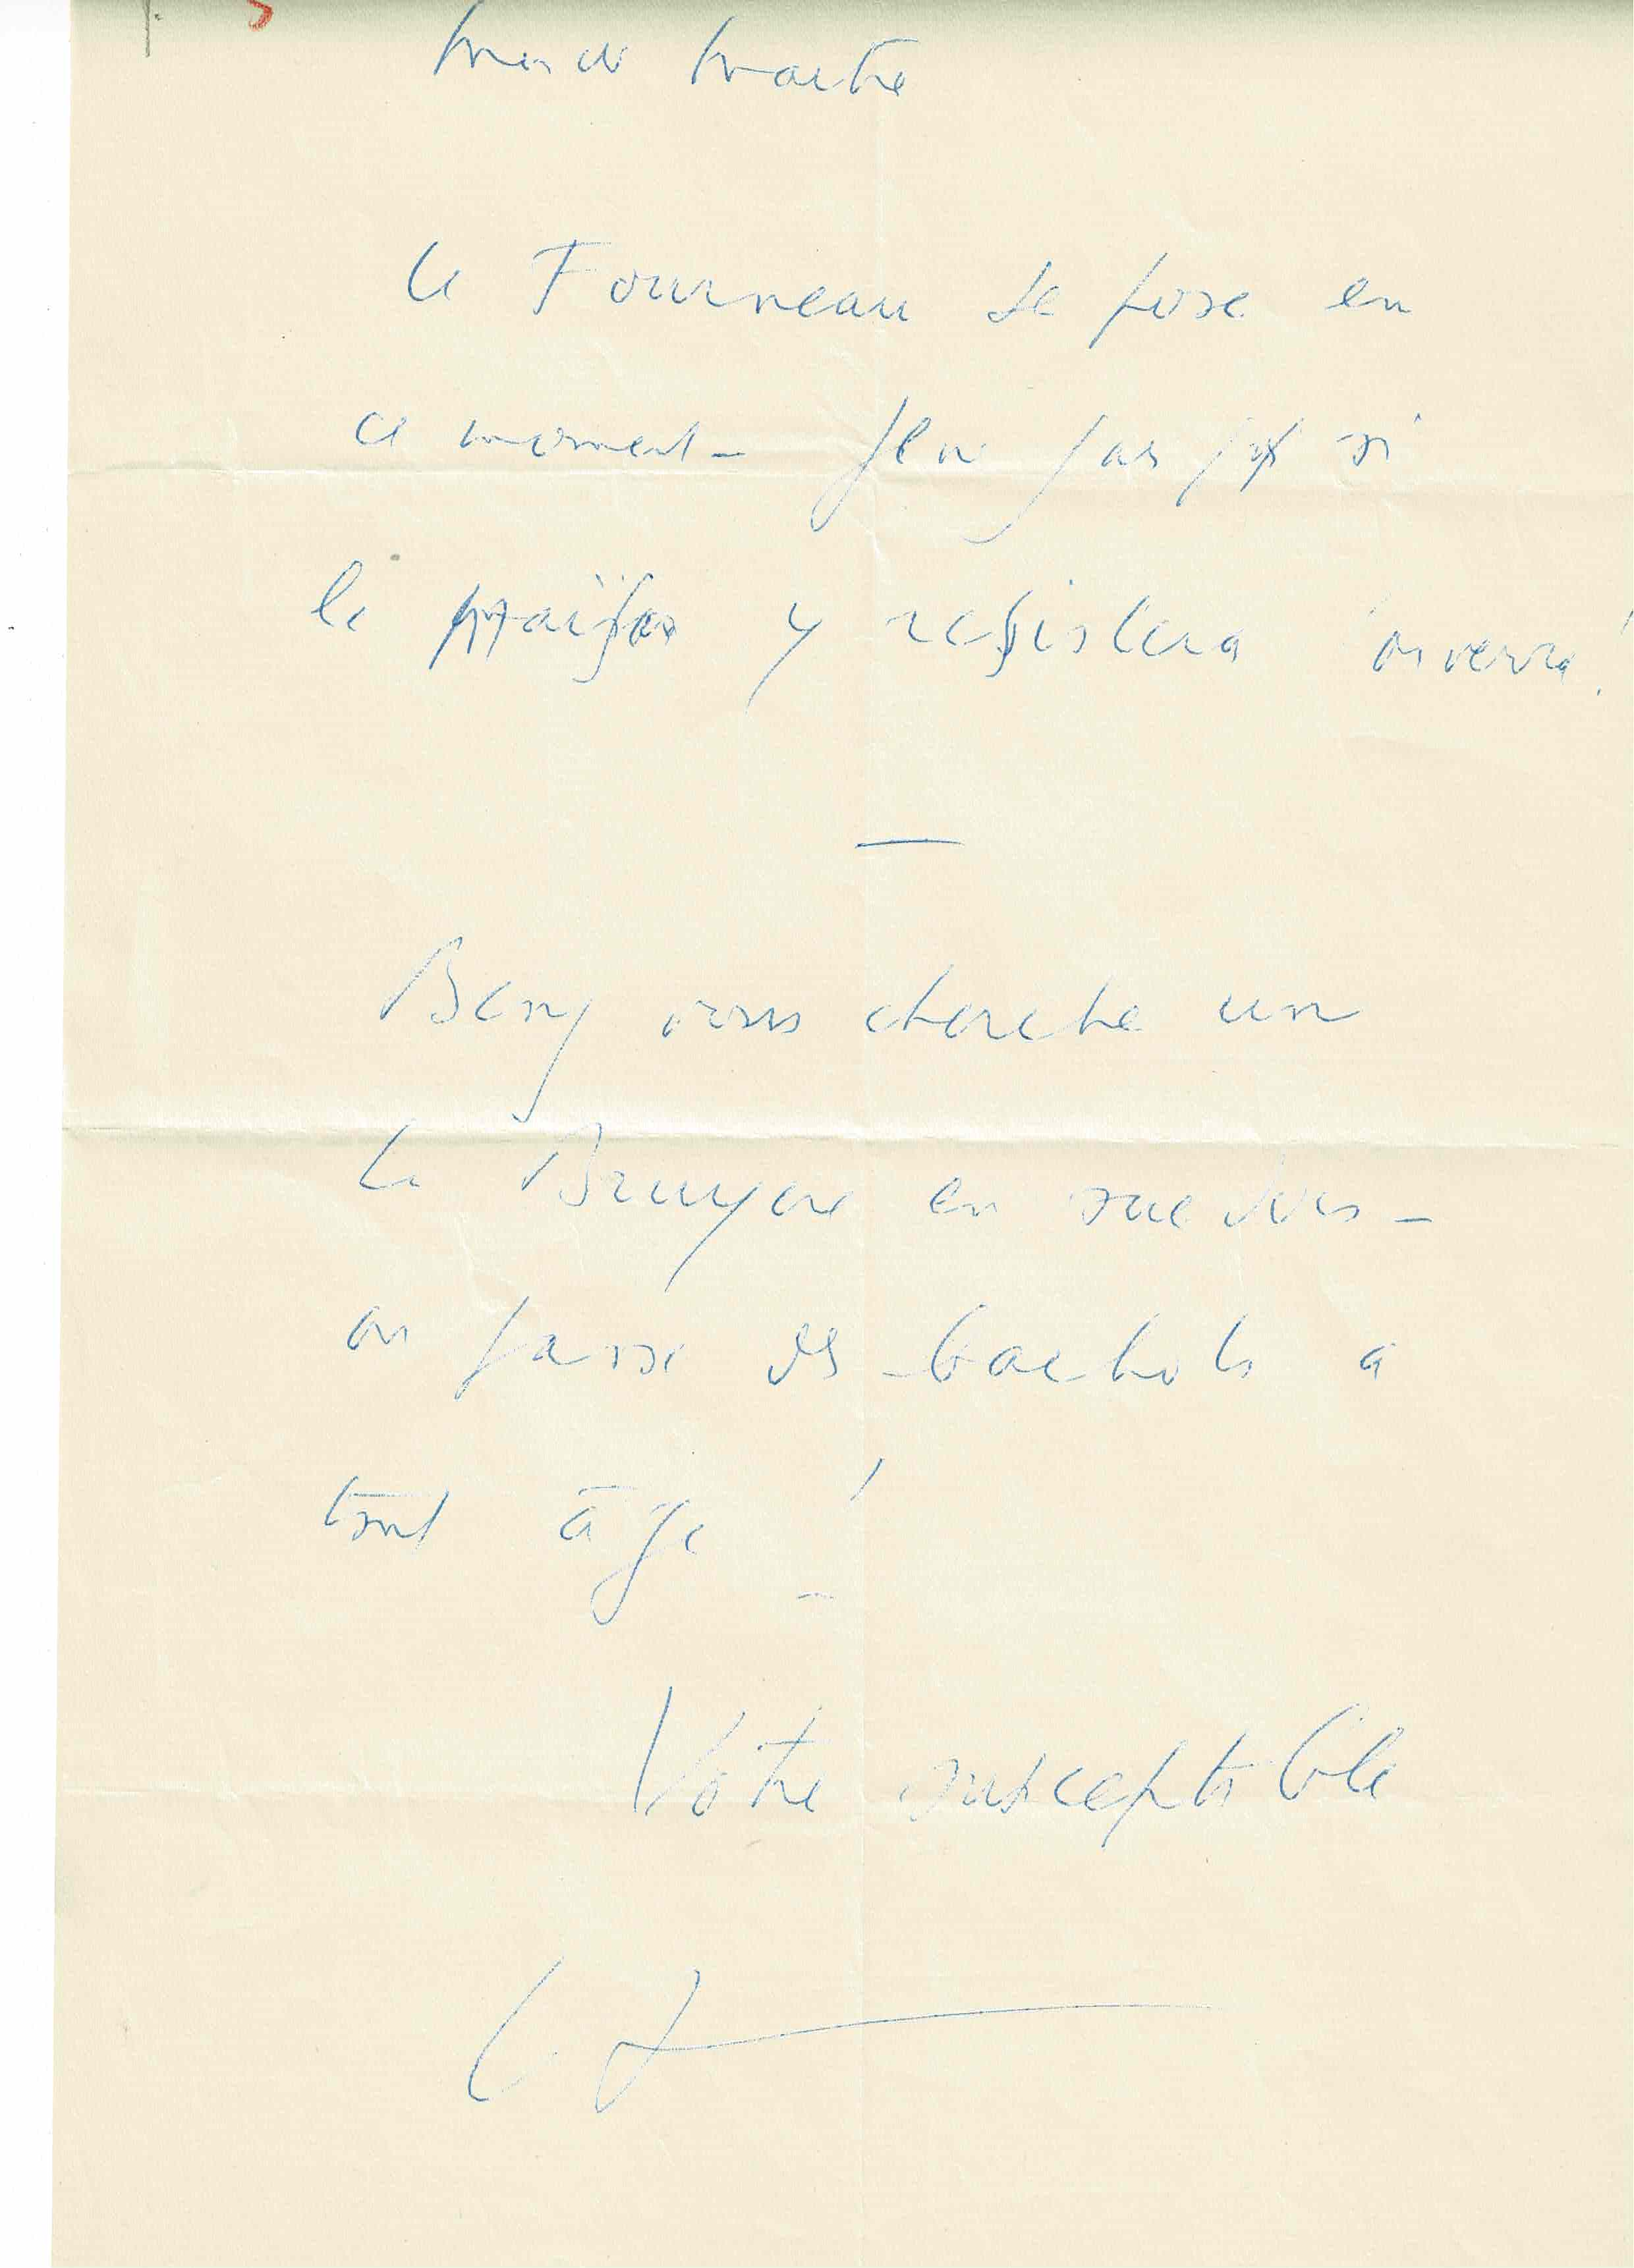 Mon cher Maître
Le Fourneau se pose en
ce moment - Je ne sais pas si
la y resistera on verra !
Beny vous cherche un
La Bruyere en
on passe des bachots a
tout âge !
Votre susceptible